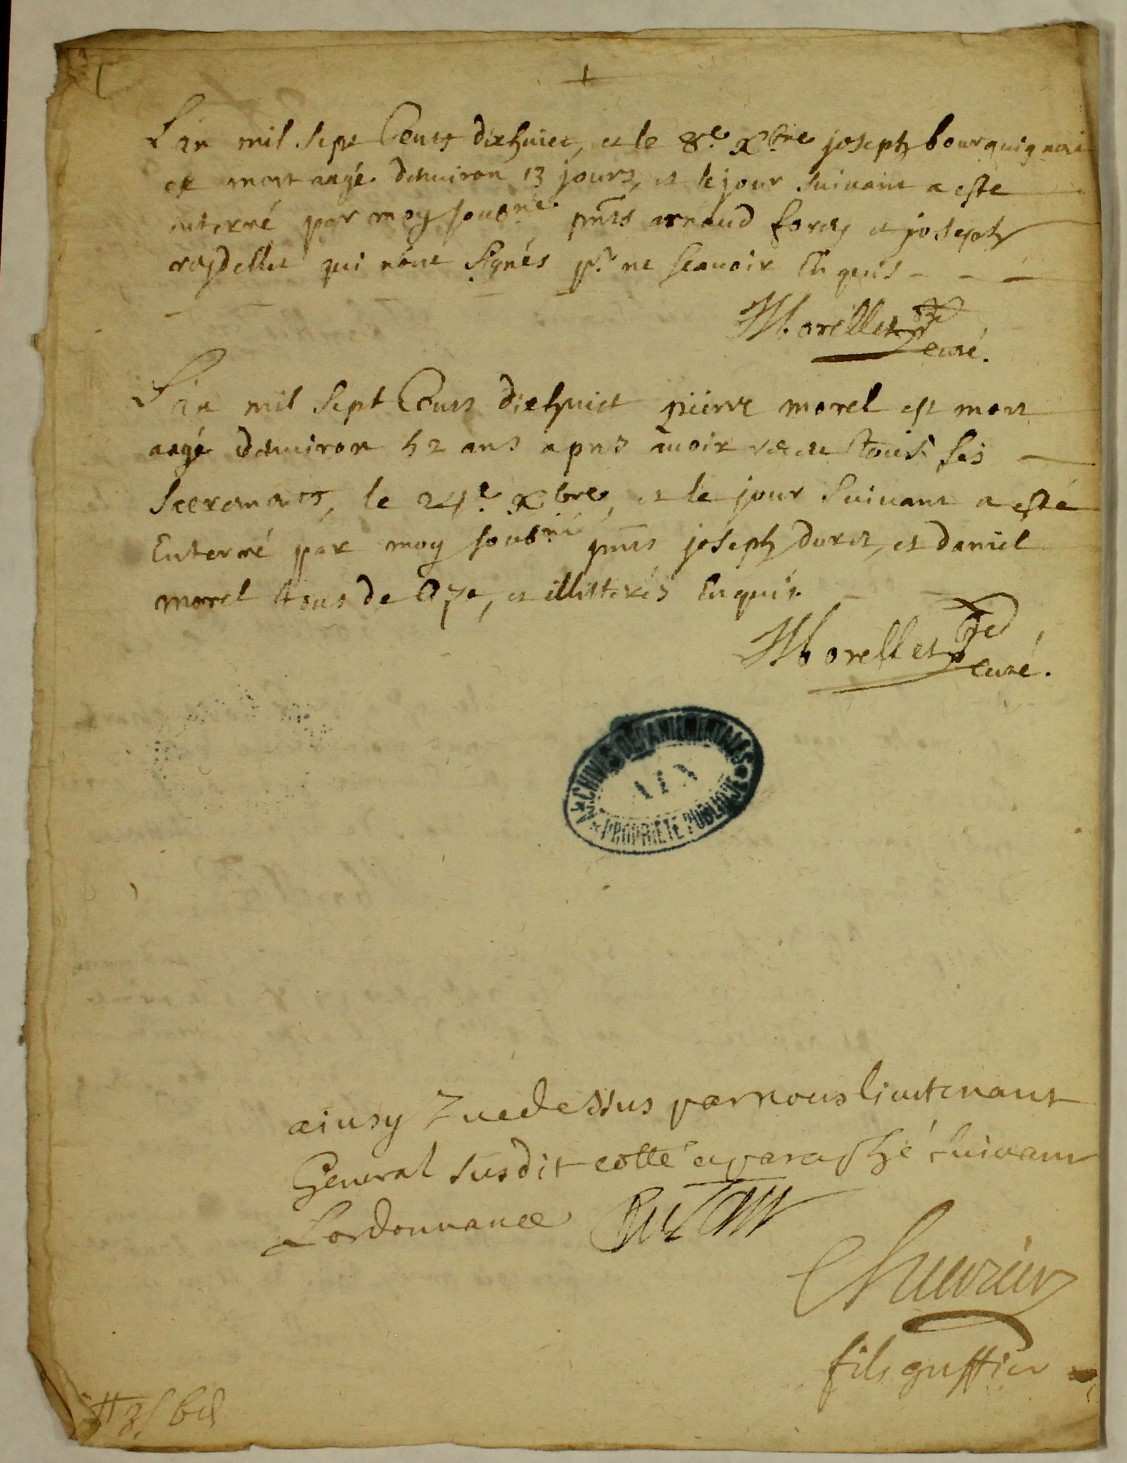 L'an mil sept Cents diexhuict, et le 8.e Xbre joseph bourguignon
est mort aagé d'environ 13 jours, et le jour suivant a esté
enterré par moy soubné pnts arnaud foray et joseph
raydellet qui n'ont signés pr ne scavoir Enquis
Morellet
curé.
L'an mil sept Cents diexhuict pierre morel est mort
aagé d'environ 52 ans apres avoir receu tous ses
Sacremants, le 24e Xbre, et le jour suivant a esté
Enterré par moy soubné pnts joseph duret, et daniel
morel tous de Oze, et illitterés Enquis.
Morellet
curé.
ARCHIVES DEPARTEMENTALES
AIN
PROPRIETE PUBLIQUE
ainsy que dessus par nous lieutenant
General susdit cotté et paraphé suivant
Lordonnance
Chevrier
fils greffier